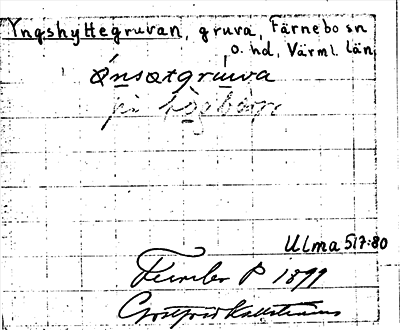 Yngshyttegruvan, gruva, Färnebo sn
o. hd, Värml. län
på Högberg
Ulma 517:80
Fernebo P 1899
Gottfrid Kallstenius